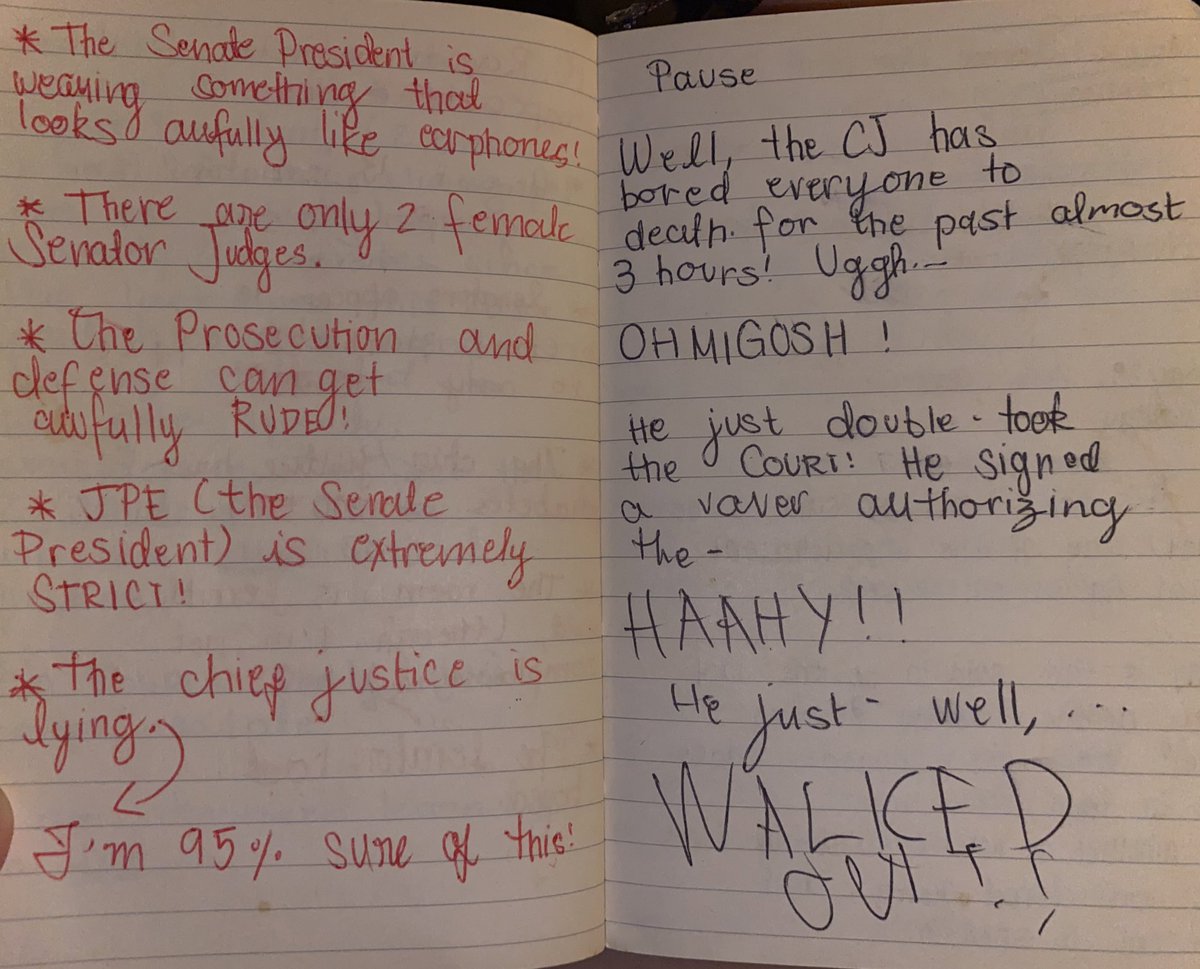 * The Senate President is
wearing something that
looks awfully like earphones!
* There are only 2 female
Senator Judges.
* The Prosecution and
defense can get
awfully RUDE!
* JPE (the Senate
President) is extremely
STRICT!
* The chief justice is
lying.
I'm 95% sure of this!
Pause
Well, the CJ has
bored everyone to
death. for the past almost
3 hours! Uggh.-
OHMIGOSH!
He just double-took
the COURT! He signed
a vaver authorizing
the -
HAAHY!!
He just- well, ...
WALKED
OUT!!